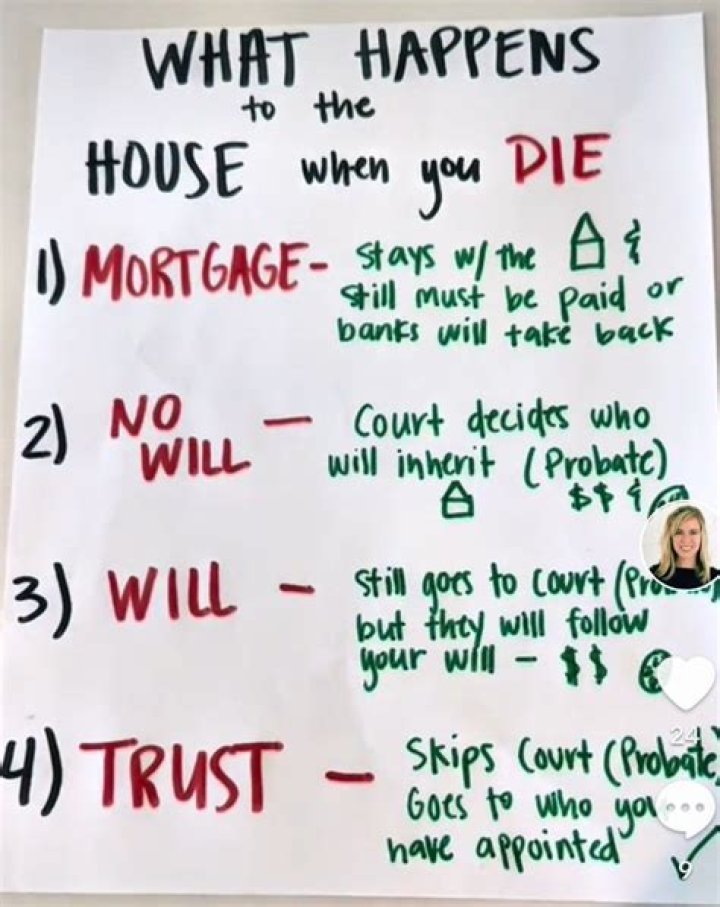 WHAT HAPPENS
to the
HOUSE when you DIE
1) MORTGAGE- stays w/ the &
still must be paid or
banks will take back
2) NO WILL — Court decides who
will inherit (Probate)
$$ &
3) WILL - still goes to court
but they will follow
your will - $$
24
4) TRUST - Skips Court (Probate
Goes to who you
have appointed
9